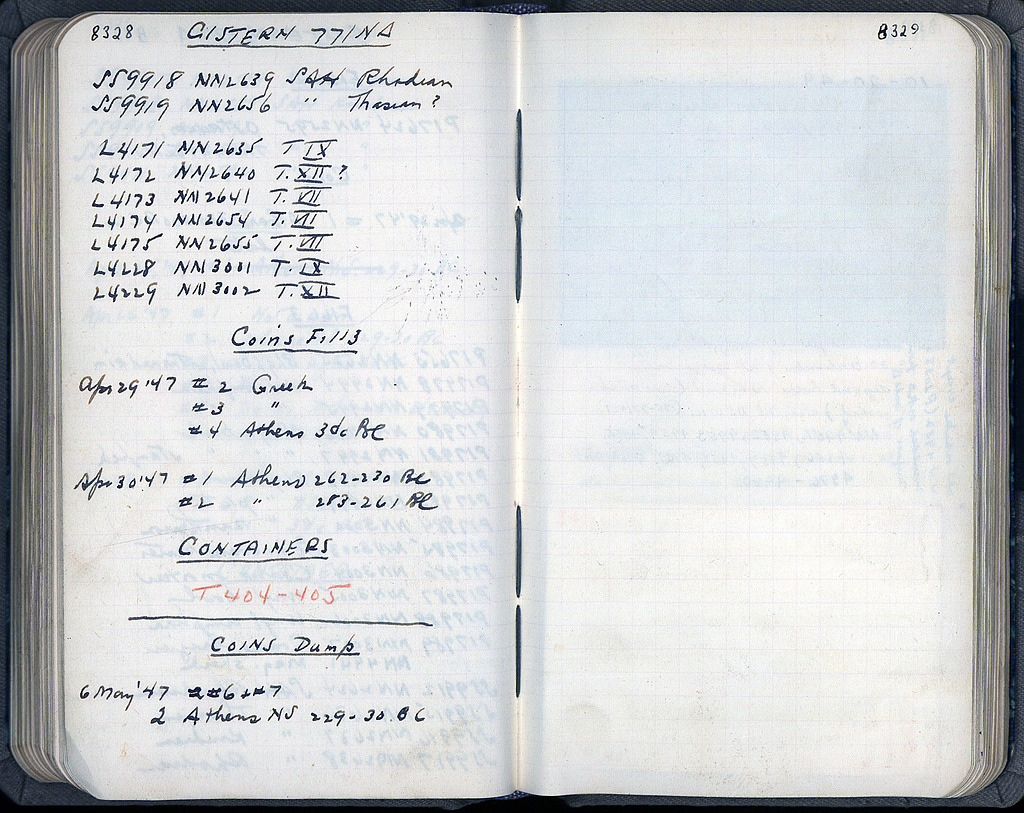 8328 CISTERN 77 INA
SS9918 NN2639 SAH Rhodian
SS9919 NN2656 " Thasian?
L4171 NN2635 T IX
L4172 NN2640 T. XII?
L4173 NN2641 T. VII
L4174 NN2654 T. VII
L4175 NN2655 T. VII
L4228 NN3001 T. IX
L4229 NN3002 T. XII
Coins Fill 3
Apr 29 '47 #2 Greek
#3 "
#4 Athens 3dc BC
Apr 30 '47 #1 Athens 262-230 BC
#2 " 283-261 BC
CONTAINERS
T 404-405
COINS Dump
6 May '47 #6 + #7
2 Athens NS 229-30 BC
8329